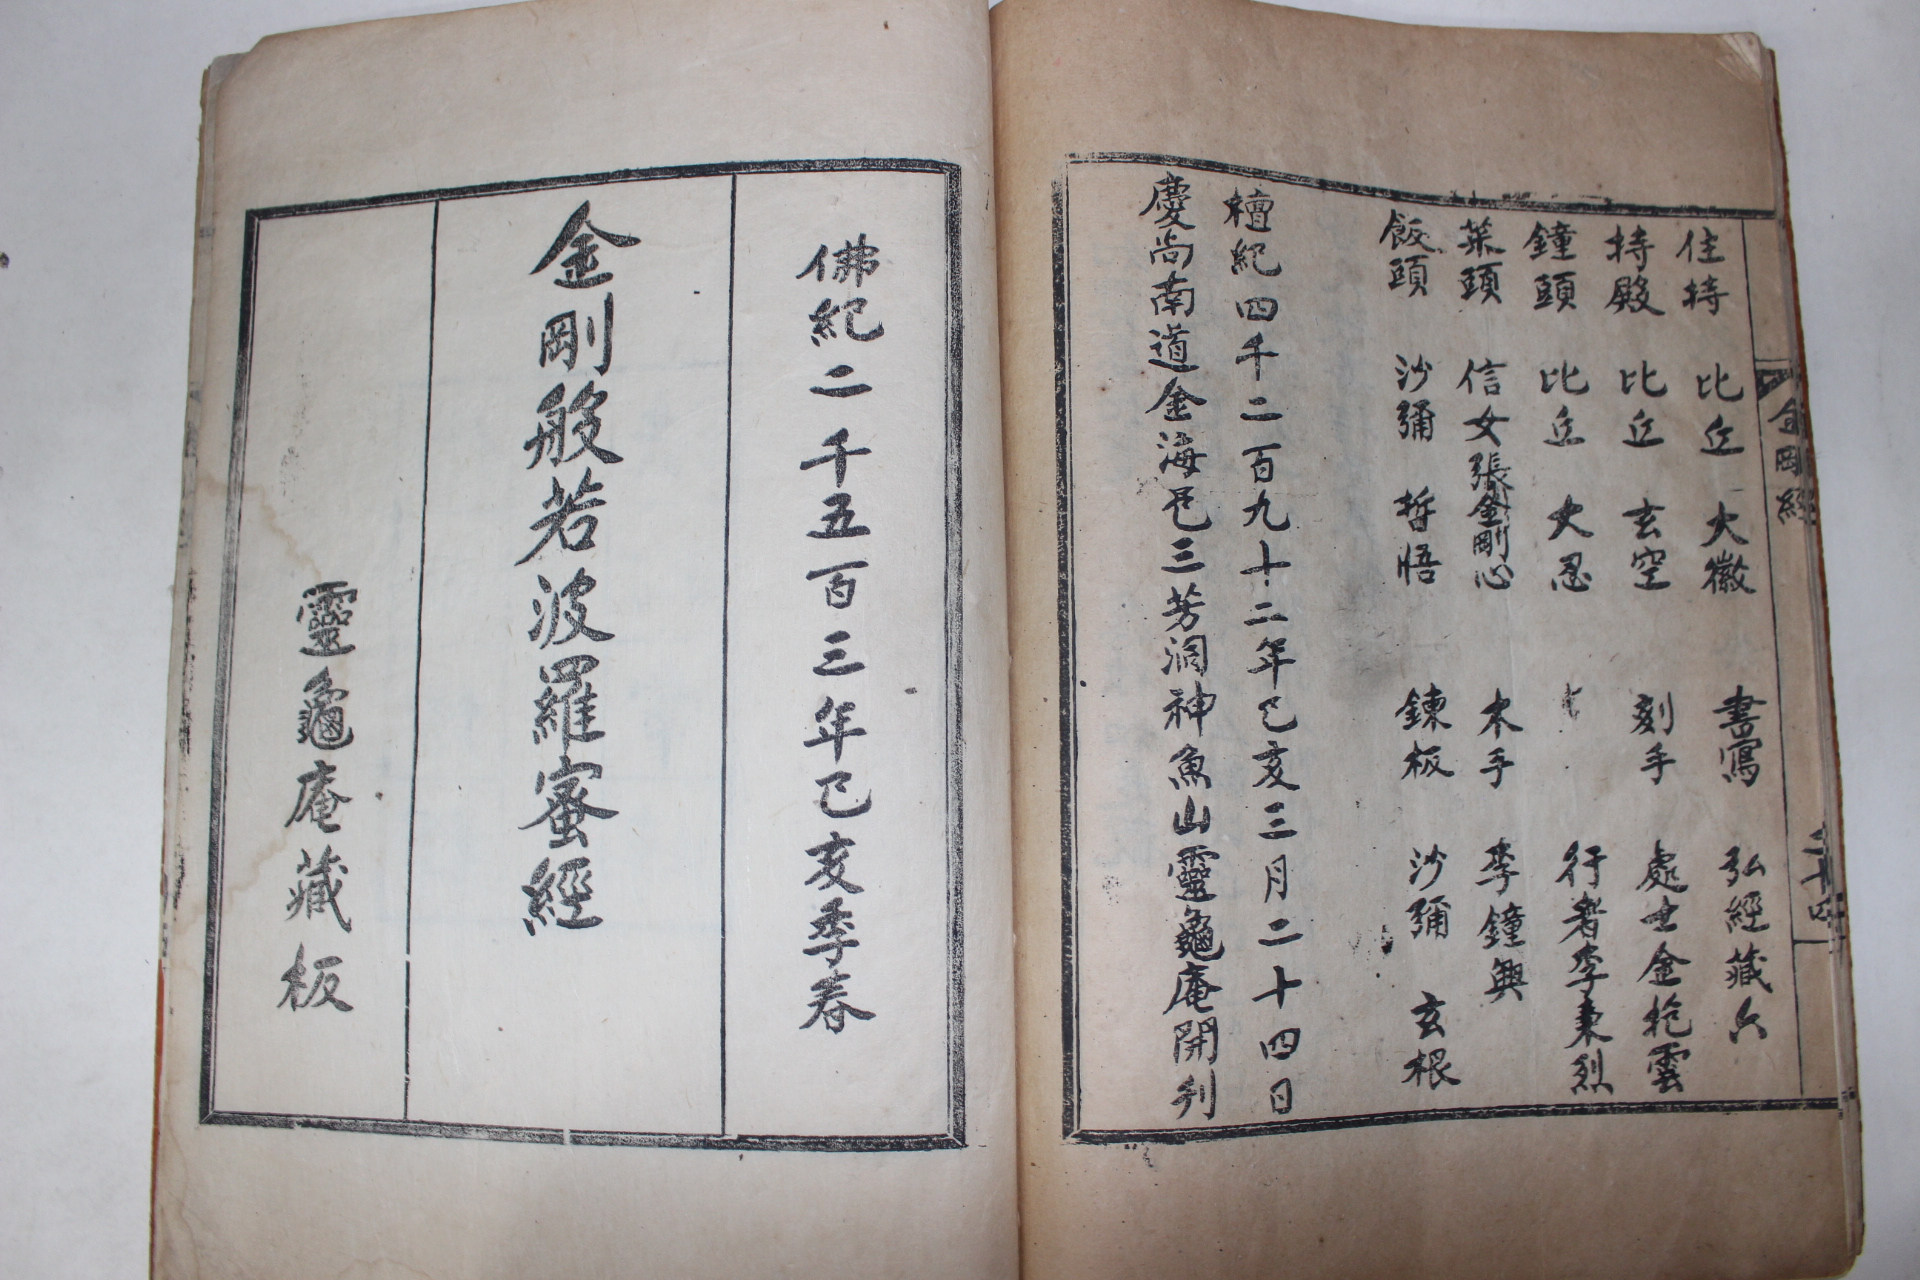 金剛經
二十四
住持 比丘 大徽 書寫 弘經藏六
持殿 比丘 玄空 刻手 處士金抱雲
鐘頭 比丘 大忍 行者李東烈
菜頭 信女張金剛心 木手 李鐘興
飯頭 沙彌 哲悟 鍊板 沙彌 玄根
檀紀四千二百九十二年己亥三月二十四日
慶尚南道金海邑三芳洞神魚山靈龜庵開刋
佛紀二千五百三年己亥季春
金剛般若波羅蜜經
靈龜庵藏板